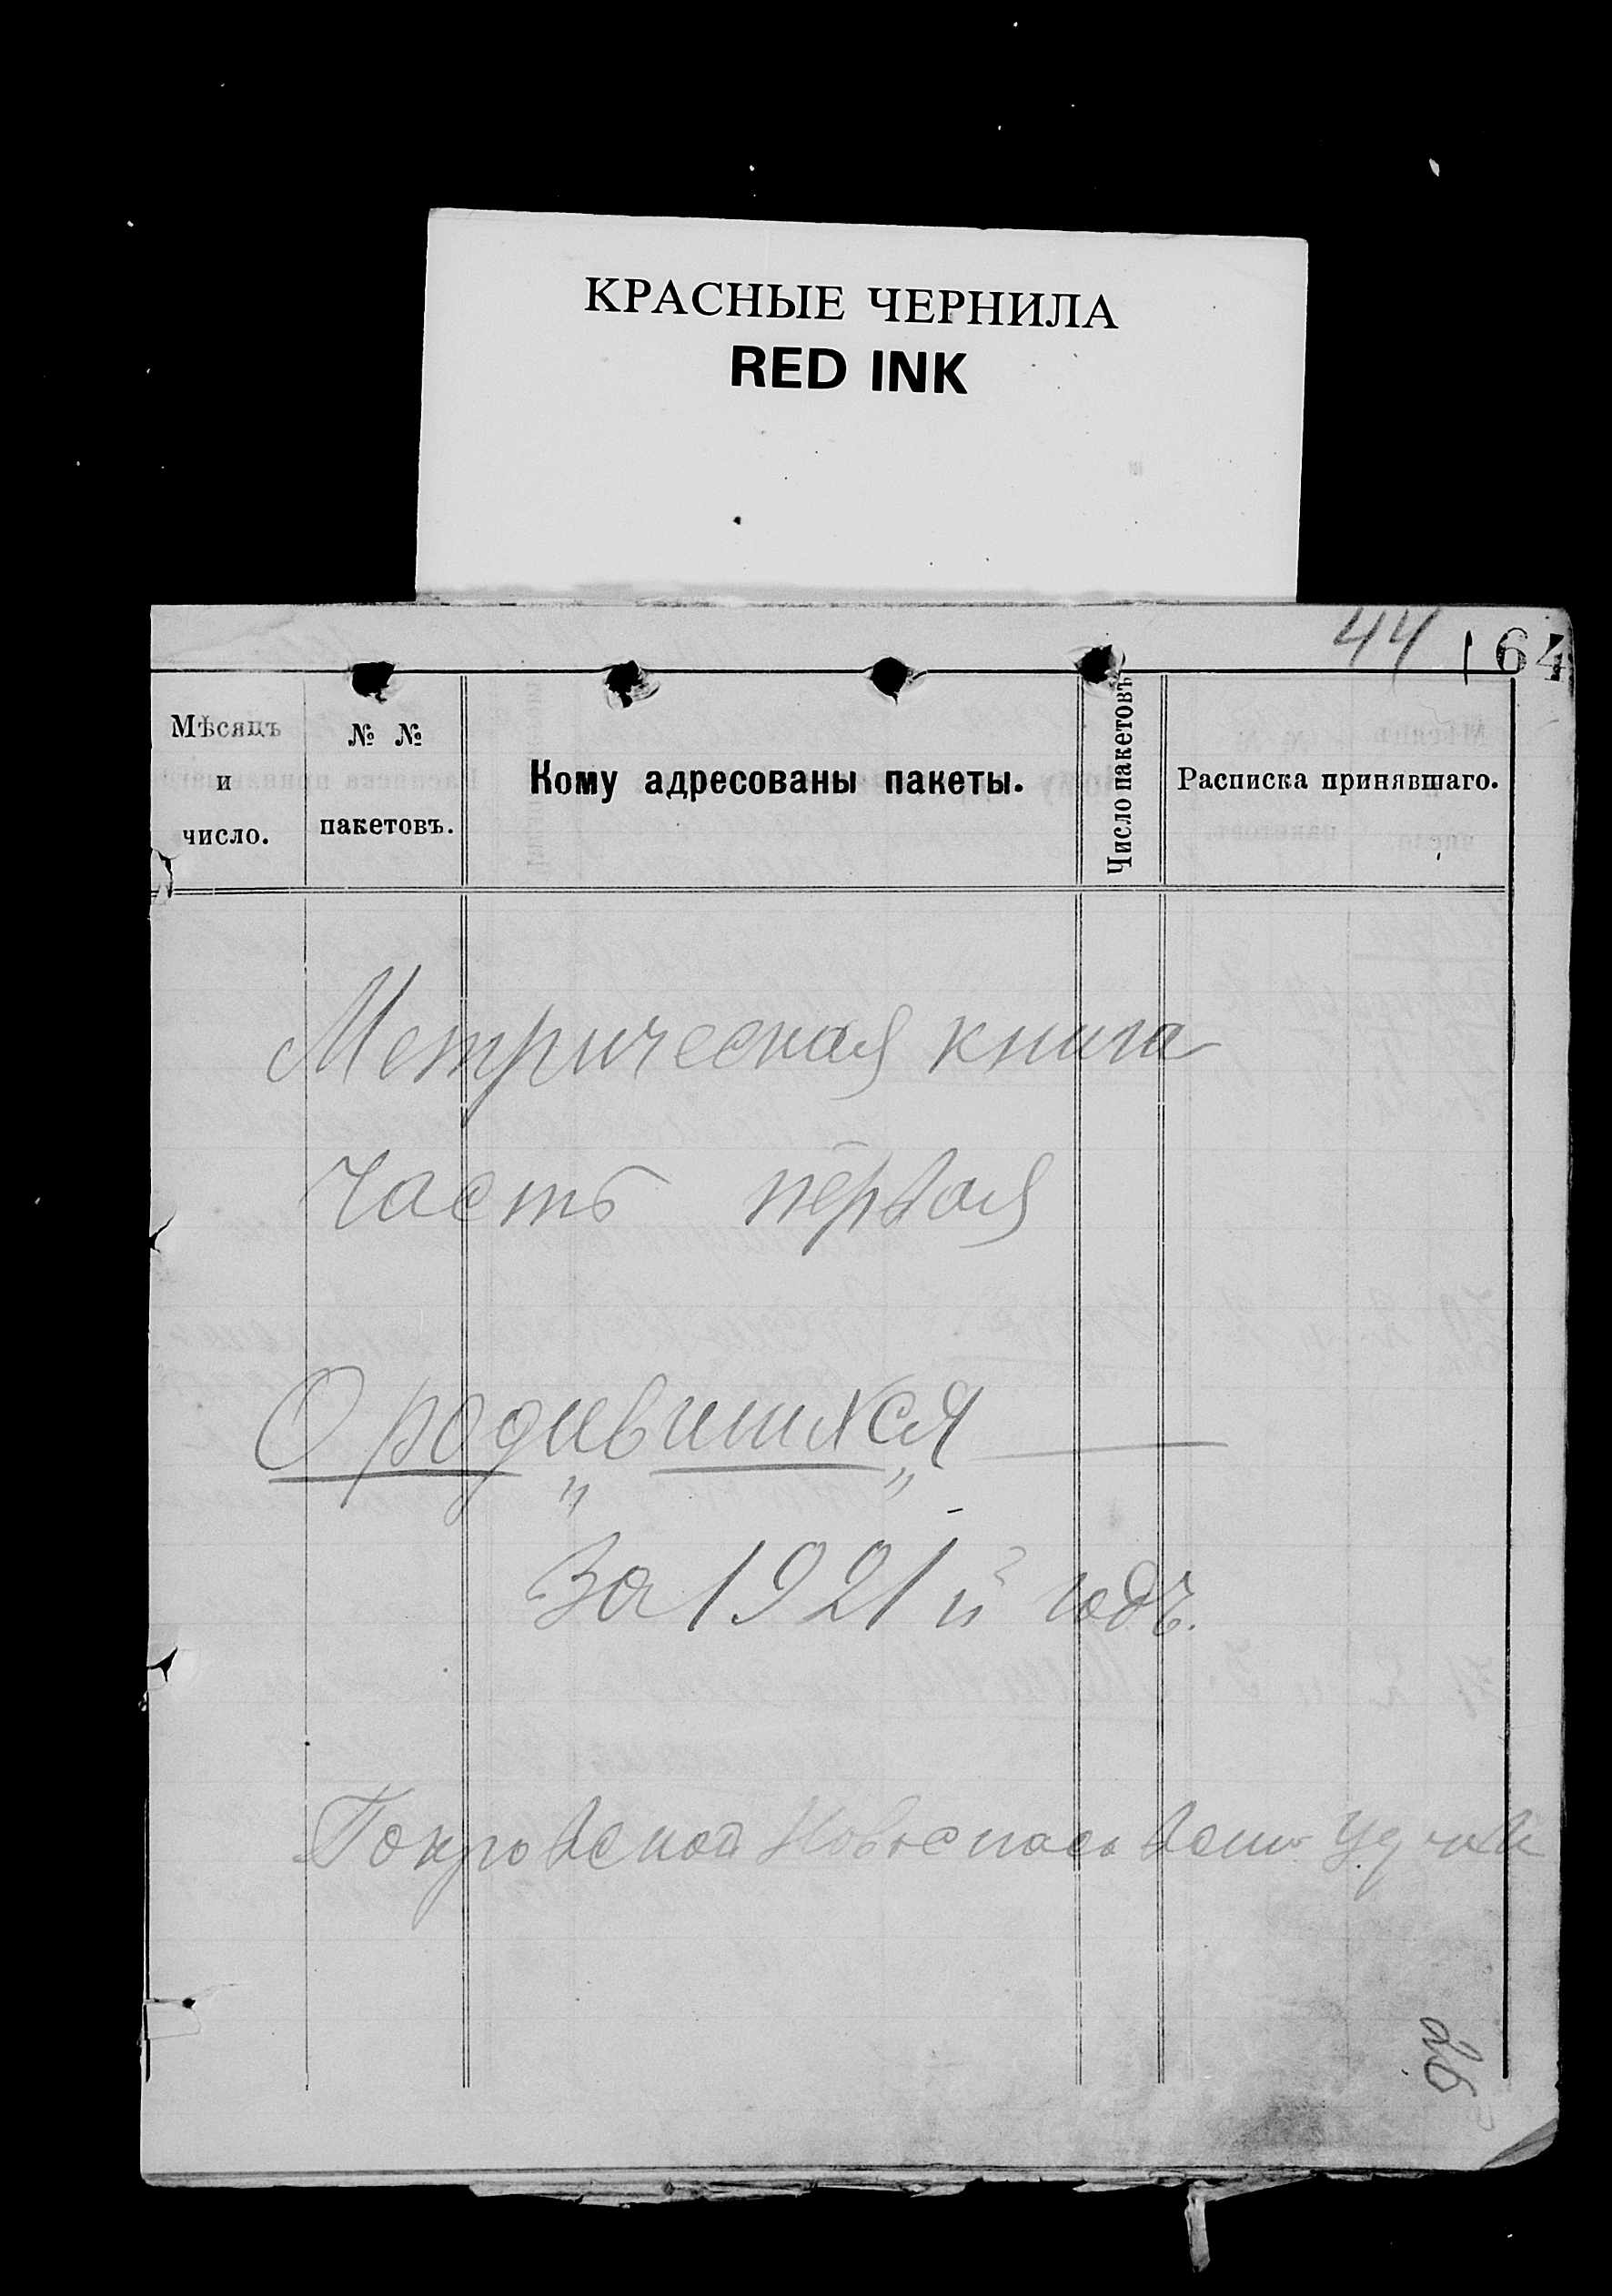 КРАСНЫЕ ЧЕРНИЛА
RED INK
44 164
Мѣсяцъ и число.
№ № пакетовъ.
Кому адресованы пакеты.
Число пакетовъ
Расписка принявшаго.
Метрическая книга
Часть первая
О родившихся
За 1921 й годъ.
Покровской